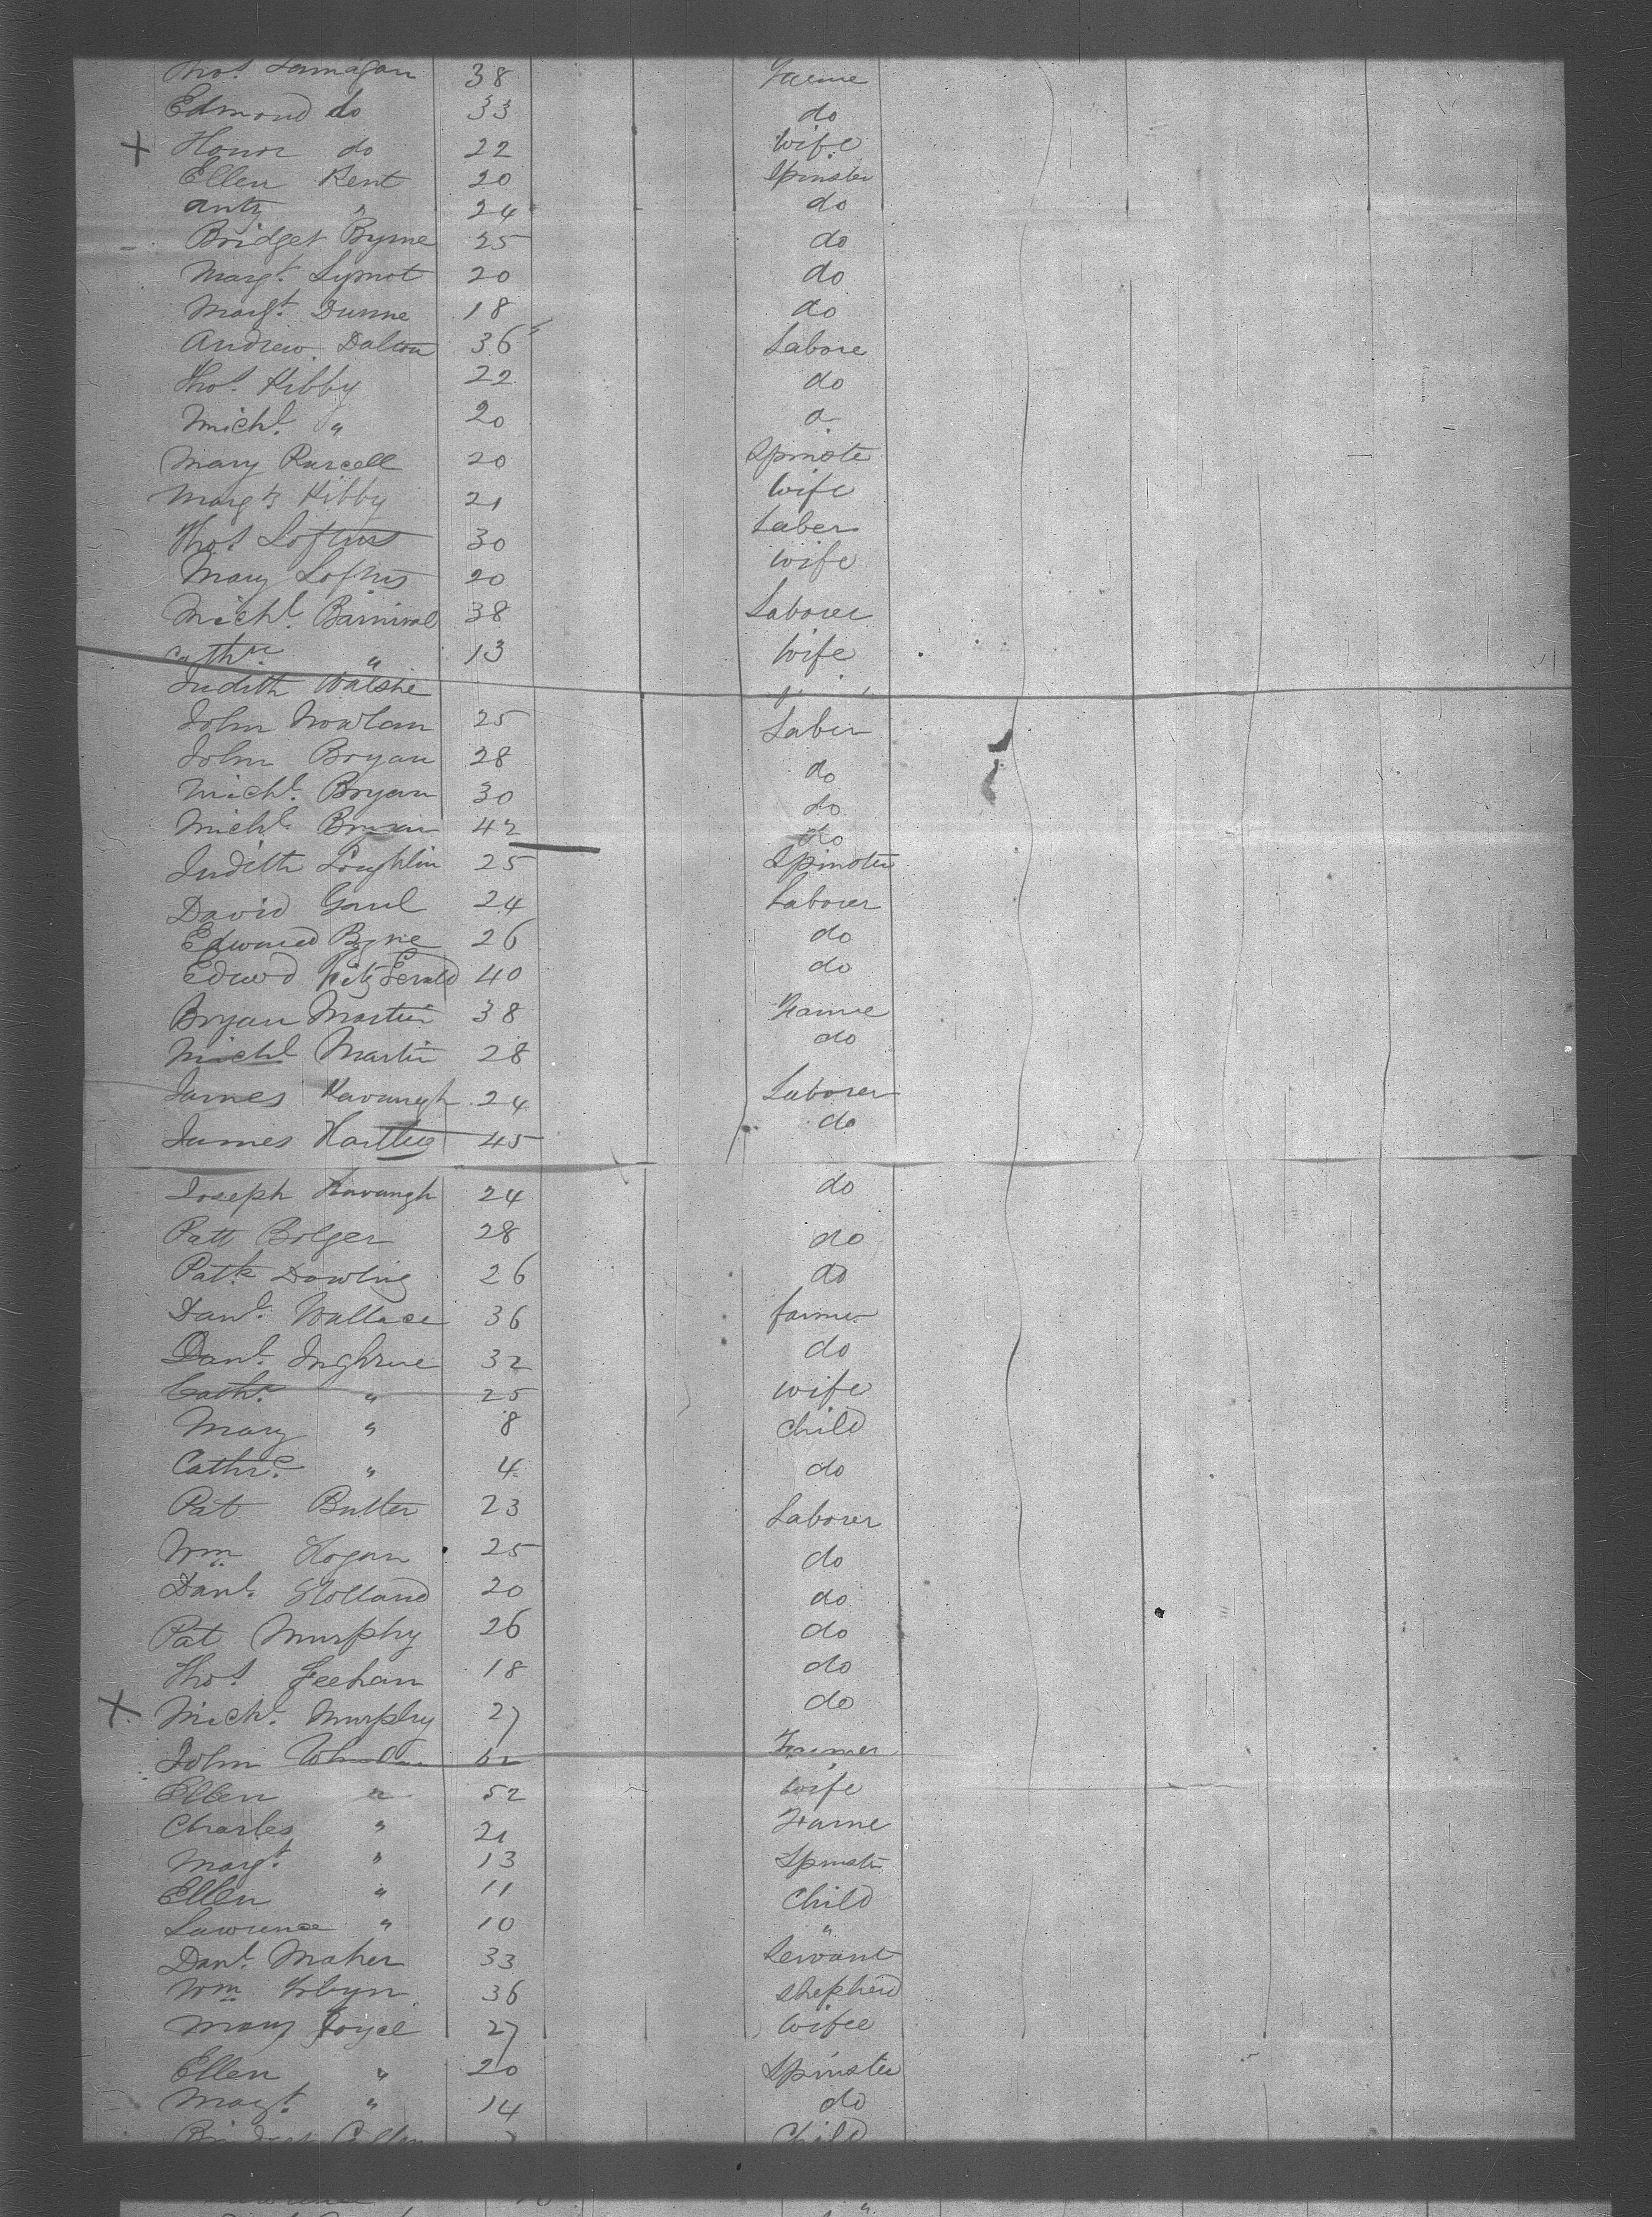 Thos. Lannagan 38 Farme
Edmond do 33 do
X Honor do 22 Wife
Ellen Kent 20 Spinster
Anty " 24 do
Bridget Byrne 25 do
Margt. Synnot 20 do
Margt. Dunne 18 do
Andrew Dalton 36 Labore
Thos. Kibby 22 do
Michl. " 20 do
Mary Purcell 20 Spinste
Margt Kibby 21 Wife
Thos. Loftus 30 Laber
Mary Loftus 20 Wife
Michl. Barnival 38 Laborer
Cathne " 13 Wife
Judith Walshe
John Nowlan 25 Laber
John Bryan 28 do
Michl. Bryan 30 do
Michl. 42 do
Judith Loughlin 25 Spinster
David Gaul 24 Laborer
Edward Byrne 26 do
Edwd FitzGerald 40 do
Bryan Martin 38 Farme
Michl Martin 28 do
James Kavanagh 24 Laborer
James 45 do
Joseph Kavangh 24 do
Patt Bolger 28 do
Patk Dowling 26 do
Danl. Wallace 36 farmer
Danl. 32 do
Cathe. " 25 wife
Mary " 8 child
Cathre. " 4 do
Pat Butler 23 Laborer
Wm Hogan 25 do
Danl. Holland 20 do
Pat Murphy 26 do
Thos. Feehan 18 do
X Michl. Murphy 27 do
John Farmer
Ellen " 52 Wife
Charles " 21 Farme
Margt. " 13 Spinster
Ellen " 11 Child
Lawrence " 10 "
Danl. Maher 33 Servant
Wm 36 Shepherd
Mary Joyce 27 Wife
Ellen " 20 Spinster
Margt. " 14 do
Bridget Child